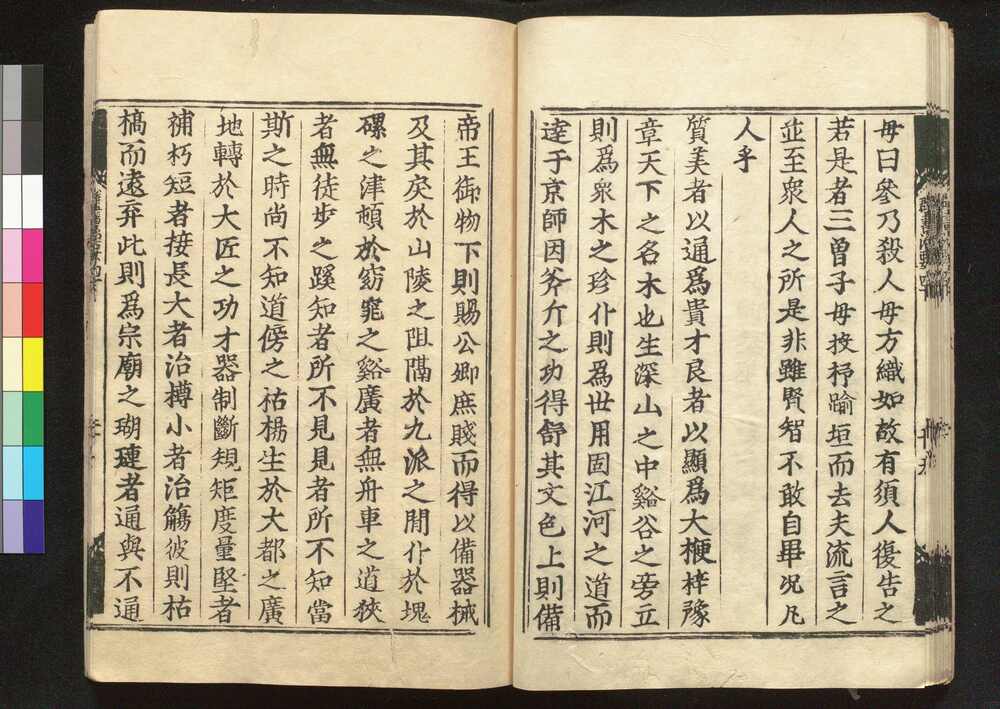 母曰參乃殺人母方織如故有須人復告之
若是者三曽子母投杼踰垣而去夫流言之
並至衆人之所是非雖賢智不敢自畢况凢
人乎
質美者以通爲貴才良者以顯爲大楩梓豫
章天下之名木也生深山之中谿谷之旁立
則爲衆木之珍仆則爲世用因江河之道而
達于京師因斧斤之功得舒其文色上則備
帝王御物下則賜公卿庶賤而得以備器械
及其戾於山陵之阻隔於九派之間仆於塊
磥之津頓於窈窕之谿廣者無舟車之道狹
者無徒步之蹊知者所不見見者所不知當
斯之時尚不知道傍之枯楊生於大都之廣
地轉於大匠之功才器制斷䂓矩度量堅者
補朽短者接長大者治搏小者治觴彼則枯
槁而遠弃此則爲宗廟之瑚璉者通與不通